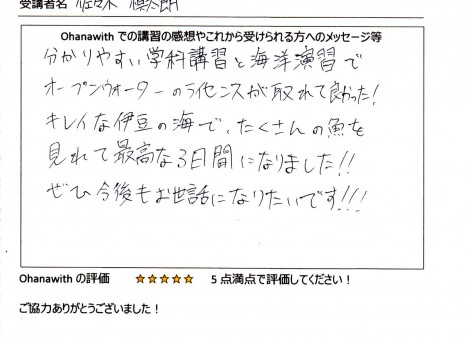 受講者名 佐々木 慎太朗
Ohanawith での講習の感想やこれから受けられる方へのメッセージ等
分かりやすい学科講習と海洋演習で
オープンウォーターのライセンスが取れて良かった!
キレイな伊豆の海で、たくさんの魚を
見れて最高な3日間になりました!!
ぜひ今後もお世話になりたいです!!!
Ohanawith の評価 ★★★★★ 5 点満点で評価してください！
ご協力ありがとうございました！